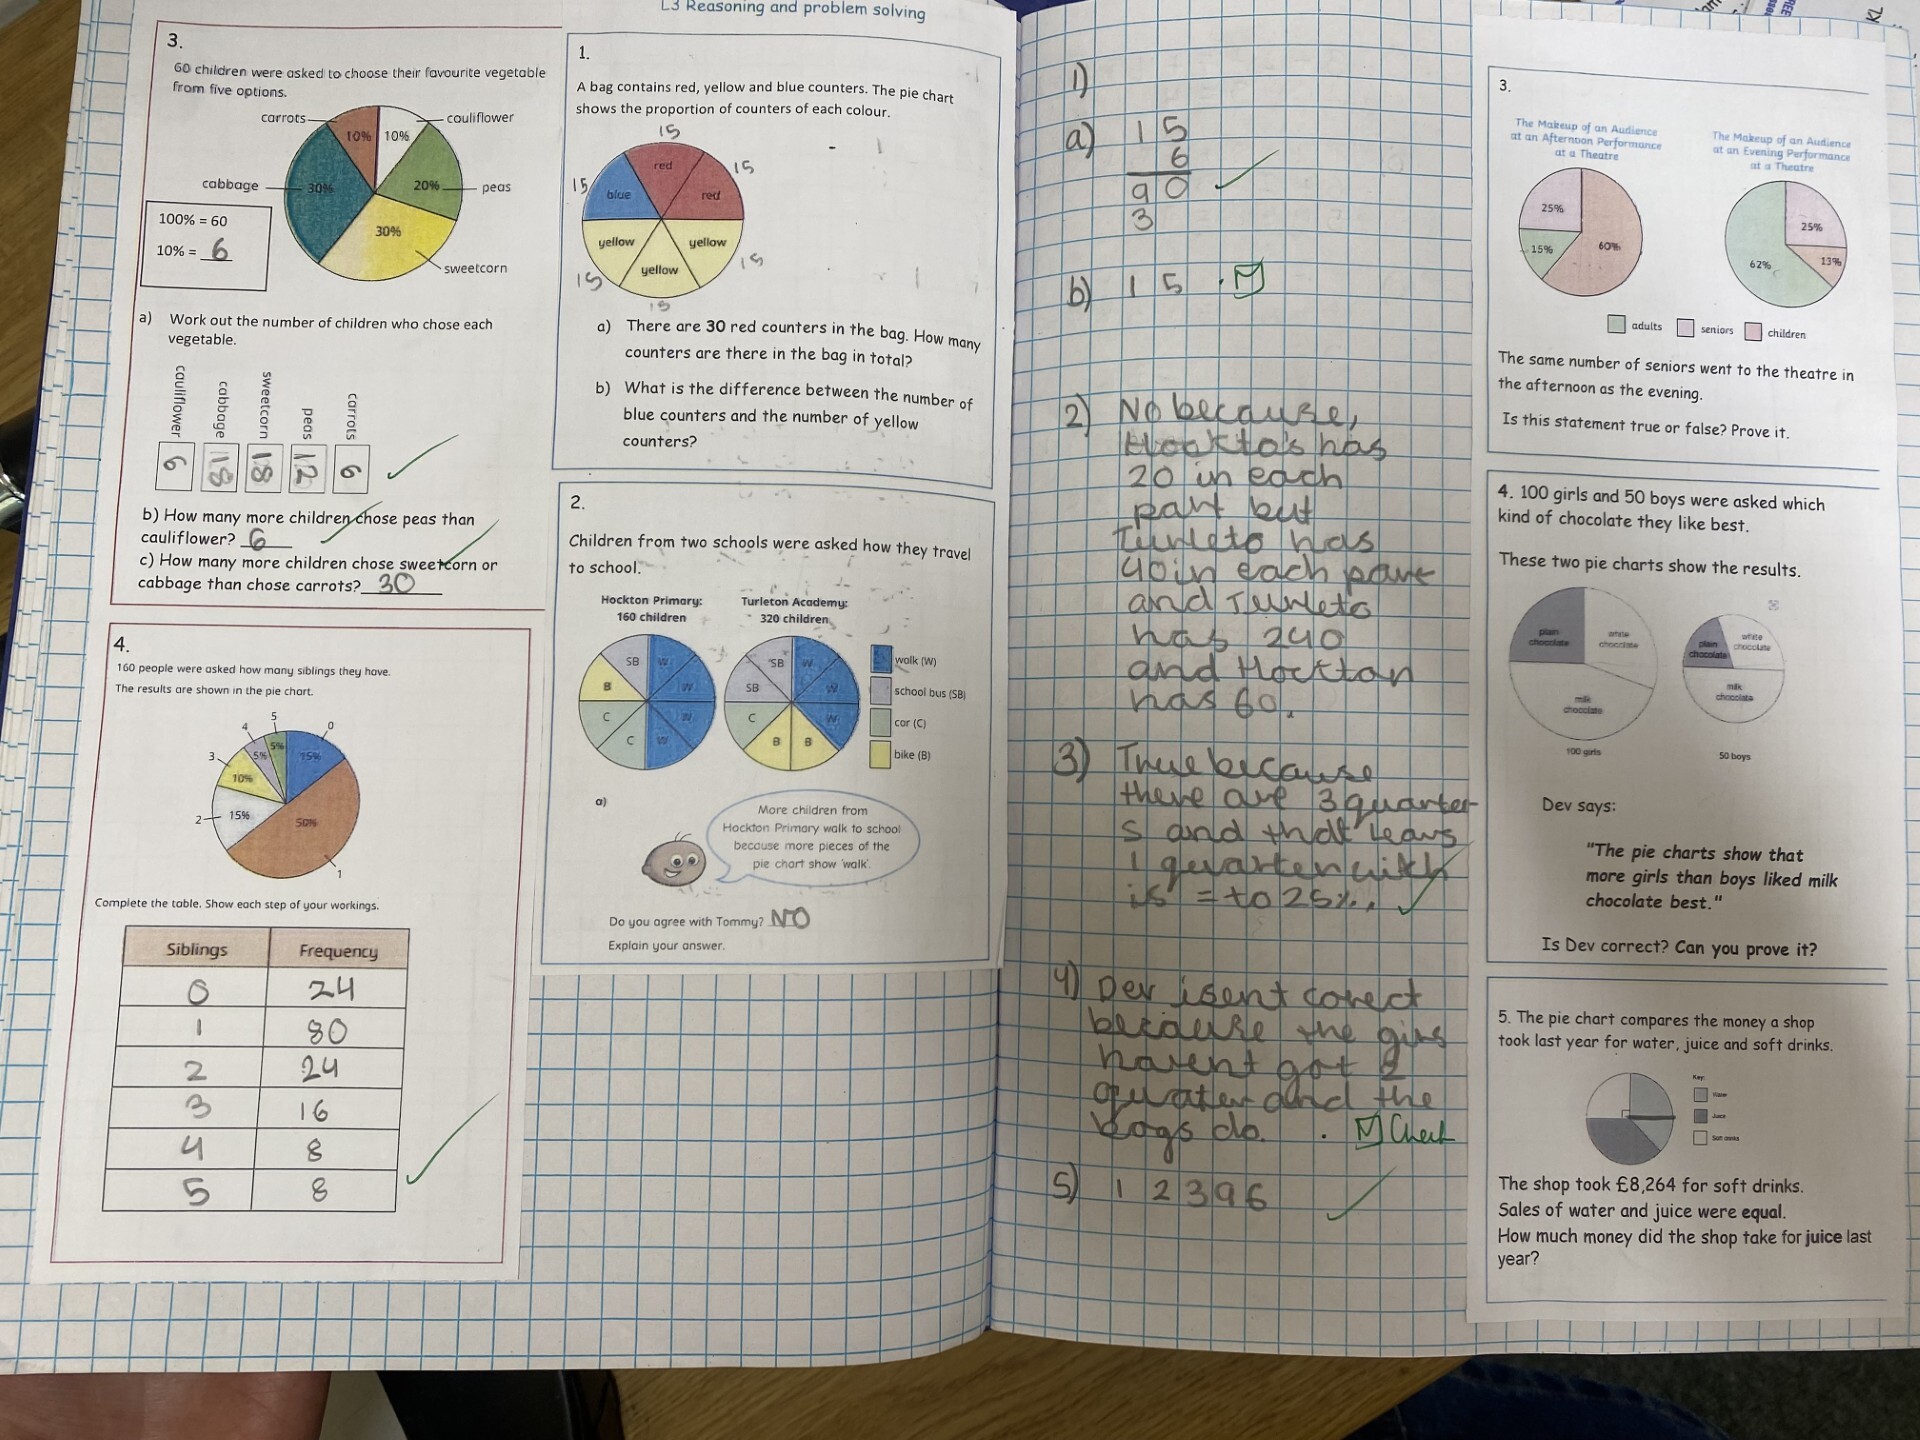 L3 Reasoning and problem solving
3.
60 children were asked to choose their favourite vegetable
from five options.
carrots
cauliflower
10%
10%
cabbage
30%
20%
peas
30%
sweetcorn
100% = 60
10% = 6
a) Work out the number of children who chose each
vegetable.
cauliflower
cabbage
sweetcorn
peas
carrots
6
18
18
12
6
b) How many more children chose peas than
cauliflower? 6
c) How many more children chose sweetcorn or
cabbage than chose carrots? 30
4.
160 people were asked how many siblings they have.
The results are shown in the pie chart.
5
4
0
3
5%
5%
15%
10%
2
15%
50%
1
Complete the table. Show each step of your workings.
Siblings Frequency
0 24
1 80
2 24
3 16
4 8
5 8
1.
A bag contains red, yellow and blue counters. The pie chart
shows the proportion of counters of each colour.
15
red
15
15
blue
red
yellow
yellow
yellow
15
15
15
a) There are 30 red counters in the bag. How many
counters are there in the bag in total?
b) What is the difference between the number of
blue counters and the number of yellow
counters?
2.
Children from two schools were asked how they travel
to school.
Hockton Primary:
160 children
Turleton Academy:
320 children
SB W
B W
C W
C W
SB W
SB W
C W
B B
walk (W)
school bus (SB)
car (C)
bike (B)
a)
More children from
Hockton Primary walk to school
because more pieces of the
pie chart show 'walk'.
Do you agree with Tommy? NO
Explain your answer.
1)
a) 15
6
90
3
b) 15
2) No because,
Hookto's has
20 in each
part but
Turleto has
40 in each part
and Turleto
has 240
and Hockton
has 60.
3) True because
there are 3 quarter
s and that leavs
1 quarter witch
is = to 25%.
4) Dev isent corect
because the girls
havent got 2
quater and the
boys do.
Check
5) 12396
3.
The Makeup of an Audience
at an Afternoon Performance
at a Theatre
The Makeup of an Audience
at an Evening Performance
at a Theatre
25%
15%
60%
25%
13%
62%
adults
seniors
children
The same number of seniors went to the theatre in
the afternoon as the evening.
Is this statement true or false? Prove it.
4. 100 girls and 50 boys were asked which
kind of chocolate they like best.
These two pie charts show the results.
plain
chocolate
white
chocolate
milk
chocolate
100 girls
plain
chocolate
white
chocolate
milk
chocolate
50 boys
Dev says:
"The pie charts show that
more girls than boys liked milk
chocolate best."
Is Dev correct? Can you prove it?
5. The pie chart compares the money a shop
took last year for water, juice and soft drinks.
Key:
Water
Juice
Soft drinks
The shop took £8,264 for soft drinks.
Sales of water and juice were equal.
How much money did the shop take for juice last
year?